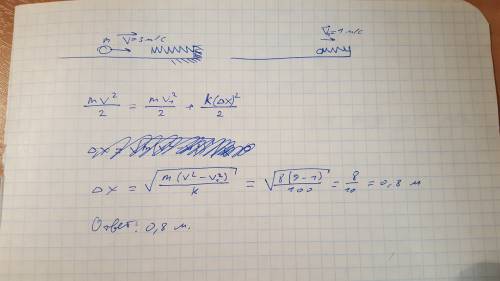 m V = 3 м/с V₁ = 1 м/с
mV²/2 = mV₁²/2 + k(Δx)²/2
Δx = √(m(V² - V₁²)/k) = √(8(9-1)/100) = 8/10 = 0,8 м
Ответ: 0,8 м.